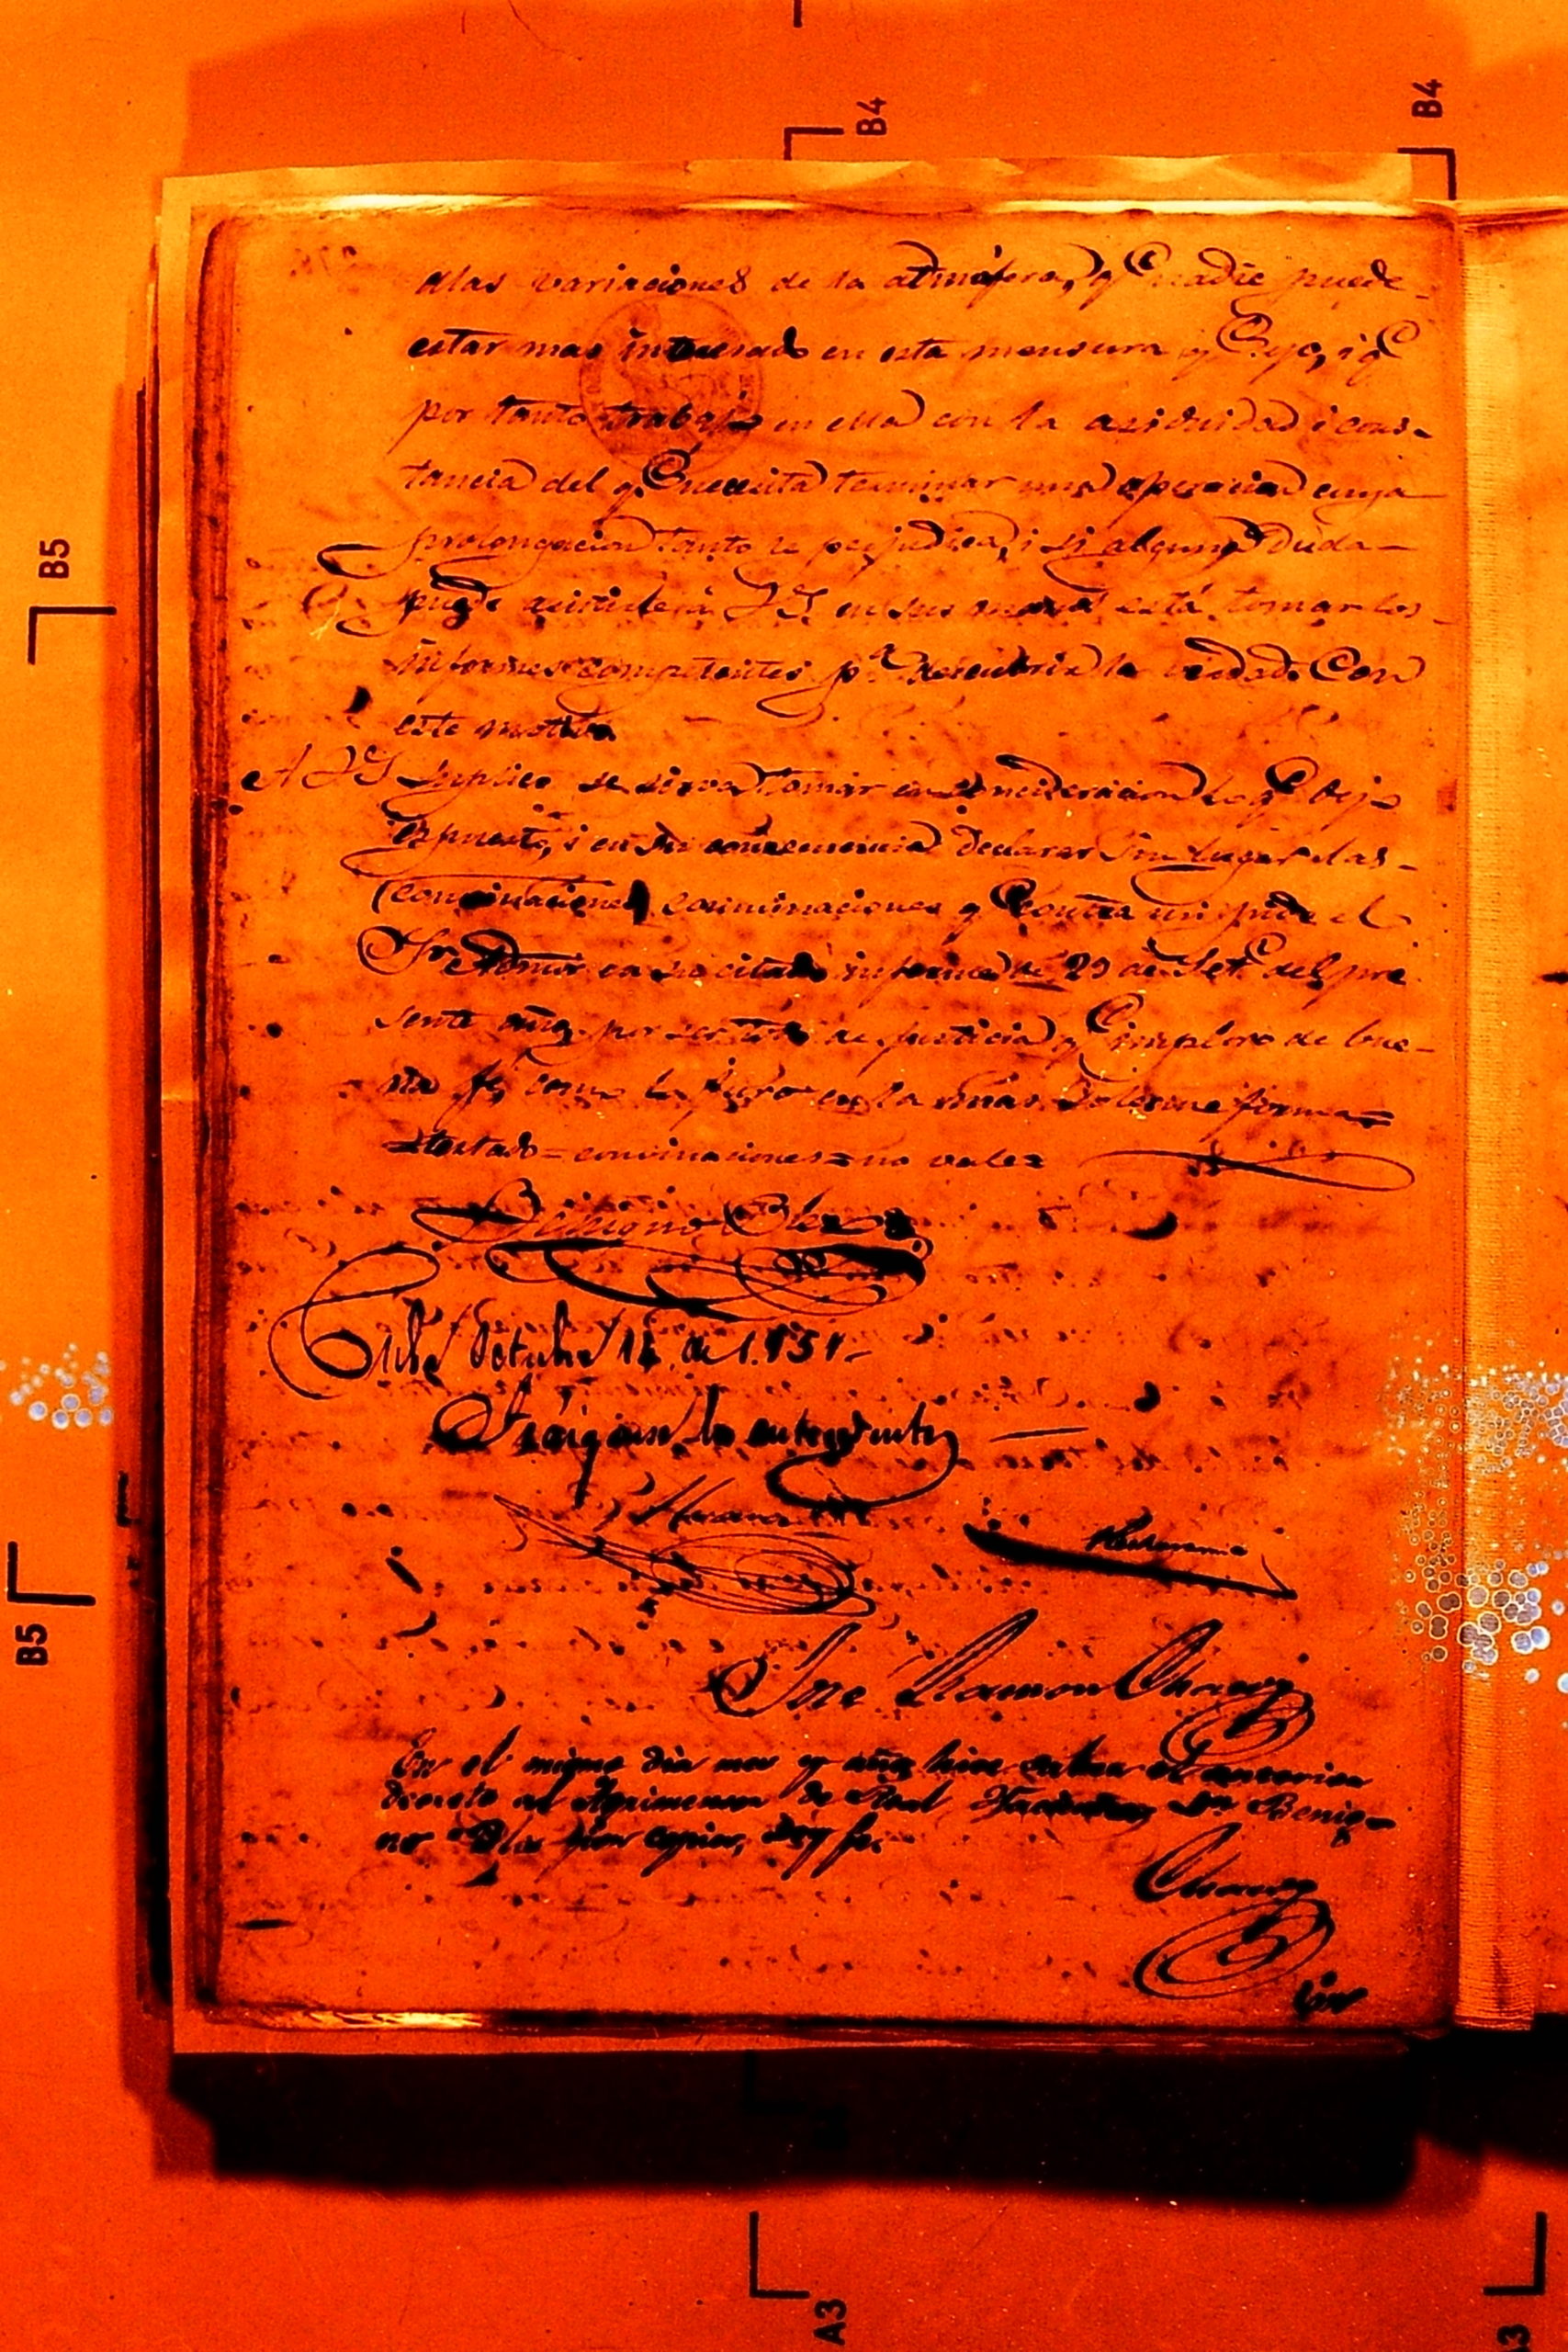 B4
B4
alas variaciones de la atmósfera, y q.e nadie puede
estar mas interesado en esta mensura q.e yo, i q.e
por tanto trabajo en ella con la asiduidad i cons-
tancia del q.e necesita terminar una operacion cuya
prolongacion tanto le perjudica, i si alguna duda
puede asistirle á VS en sus manos está tomar los
informes competentes p.a descubrir la verdad. Con
este motivo
A VS suplico se sirva tomar en concideracion lo q.e dejo
espuesto, i en su consecuencia declarar sin lugar á las
convinaciones conminaciones q.e contra mi pide el
Sr en su citado informe de 29 de Set.e del pre
sente año, por ser todo de justicia q.e imploro de bue-
na fé, como lo juro en la más solemne forma=
testado=convinaciones=no vale=
Benigno
Octubre 14 de 1.851.
Tráigase los antecedentes
José Ramon Chavez
En el mismo dia mes y año hice saber el anterior
decreto al Agrimensor de Real Hacienda Dn Benig-
no por copia, doy fe.
Chavez
B5
B5
A3